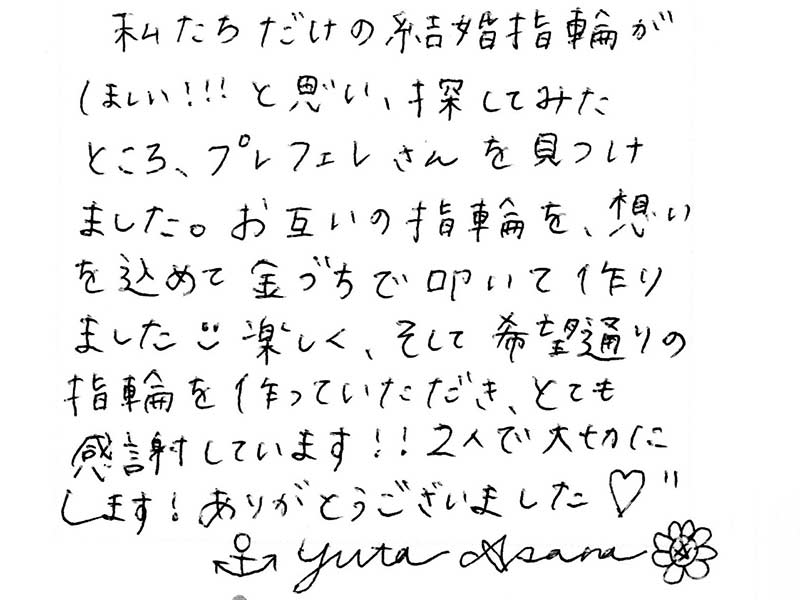 私たちだけの結婚指輪が
ほしい!!!と思い、探してみた
ところ、プレフェレさんを見つけ
ました。お互いの指輪を、想い
を込めて金づちで叩いて作り
ました 楽しく、そして希望通りの
指輪を作っていただき、とても
感謝しています!!2人で大切に
します!ありがとうございました♡"
Yuta Asana